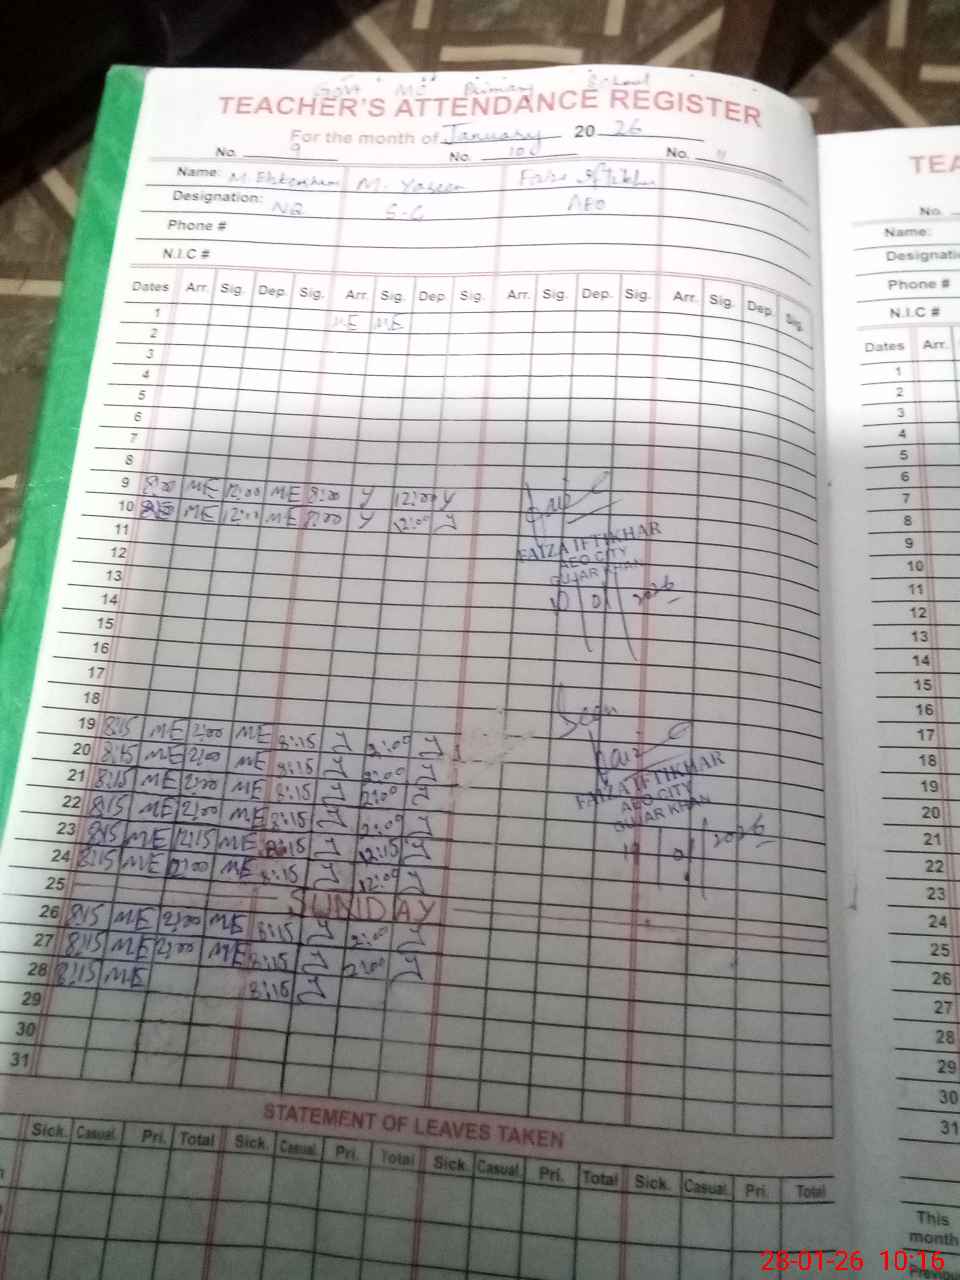 Govt MC Primary School
TEACHER'S ATTENDANCE REGISTER
For the month of January 20 26
No. 9 No. 10 No. 11
Name: M. M. Yaseen Faiza Iftikhar
Designation: NQ S-C AEO
Phone #
N.I.C #
Dates Arr. Sig. Dep. Sig. Arr. Sig. Dep. Sig. Arr. Sig. Dep. Sig. Arr. Sig. Dep. Sig.
1 ME ME
2
3
4
5
6
7
8
9 8:00 ME 12:00 ME 8:00 Y 12:00 Y
10 ME 12:00 ME 8:00 Y 12:00 Y
11
FAIZA IFTIKHAR
12
AEO CITY
13
GUJAR KHAN
14
10 01 2026
15
16
17
18
Seen
19 8:15 ME 2:00 ME 8:15 Y 2:00 Y
20 8:15 ME 2:00 ME 8:15 Y 2:00 Y
FAIZA IFTIKHAR
21 8:15 ME 2:00 ME 8:15 Y 2:00 Y
AEO CITY
GUJAR KHAN
22 8:15 ME 2:00 ME 8:15 Y 2:00 Y
19 01 2026
23 8:15 ME 12:15 ME 8:15 Y 12:15 Y
24 8:15 ME 12:00 ME 8:15 Y 12:00 Y
25 SUNDAY
26 8:15 ME 2:00 ME 8:15 Y 2:00 Y
27 8:15 ME 2:00 ME 8:15 Y 2:00 Y
28 8:15 ME 8:15 Y
29
30
31
STATEMENT OF LEAVES TAKEN
Sick. Casual. Pri. Total Sick. Casual. Pri. Total Sick. Casual. Pri. Total Sick. Casual. Pri. Total
TEA
No.
Name:
Designati
Phone #
N.I.C #
Dates Arr.
1
2
3
4
5
6
7
8
9
10
11
12
13
14
15
16
17
18
19
20
21
22
23
24
25
26
27
28
29
30
31
This
month
28-01-26 10:16